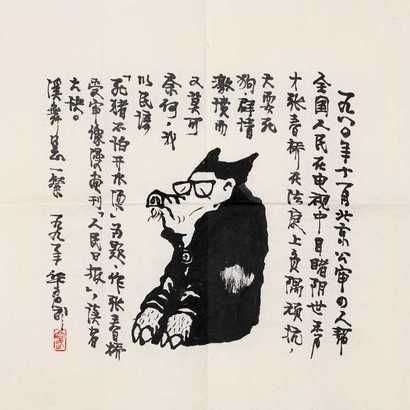 一九八〇年十一月北京公审四人帮
全国人民在电视中目睹阴世秀
才张春桥在法庭上负隅顽抗，
大耍死
狗，群情
激愤而
又莫可
奈何，我
以民谚
「死猪不怕开水烫」为题，作张春桥
受审像漫画刊「人民日报」，读者
大快。
一粲 华君武